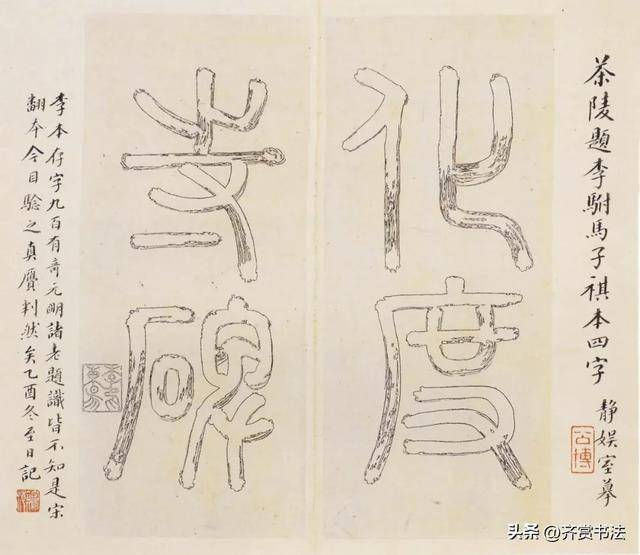 茶陵題李駙馬子祺本四字
静娱室摹
公博
化度
寺碑
李本存字九百有奇元明諸老題識皆不知是宋
翻本今目驗之真贗判然矣乙酉冬至日記
头条 @齐赏书法